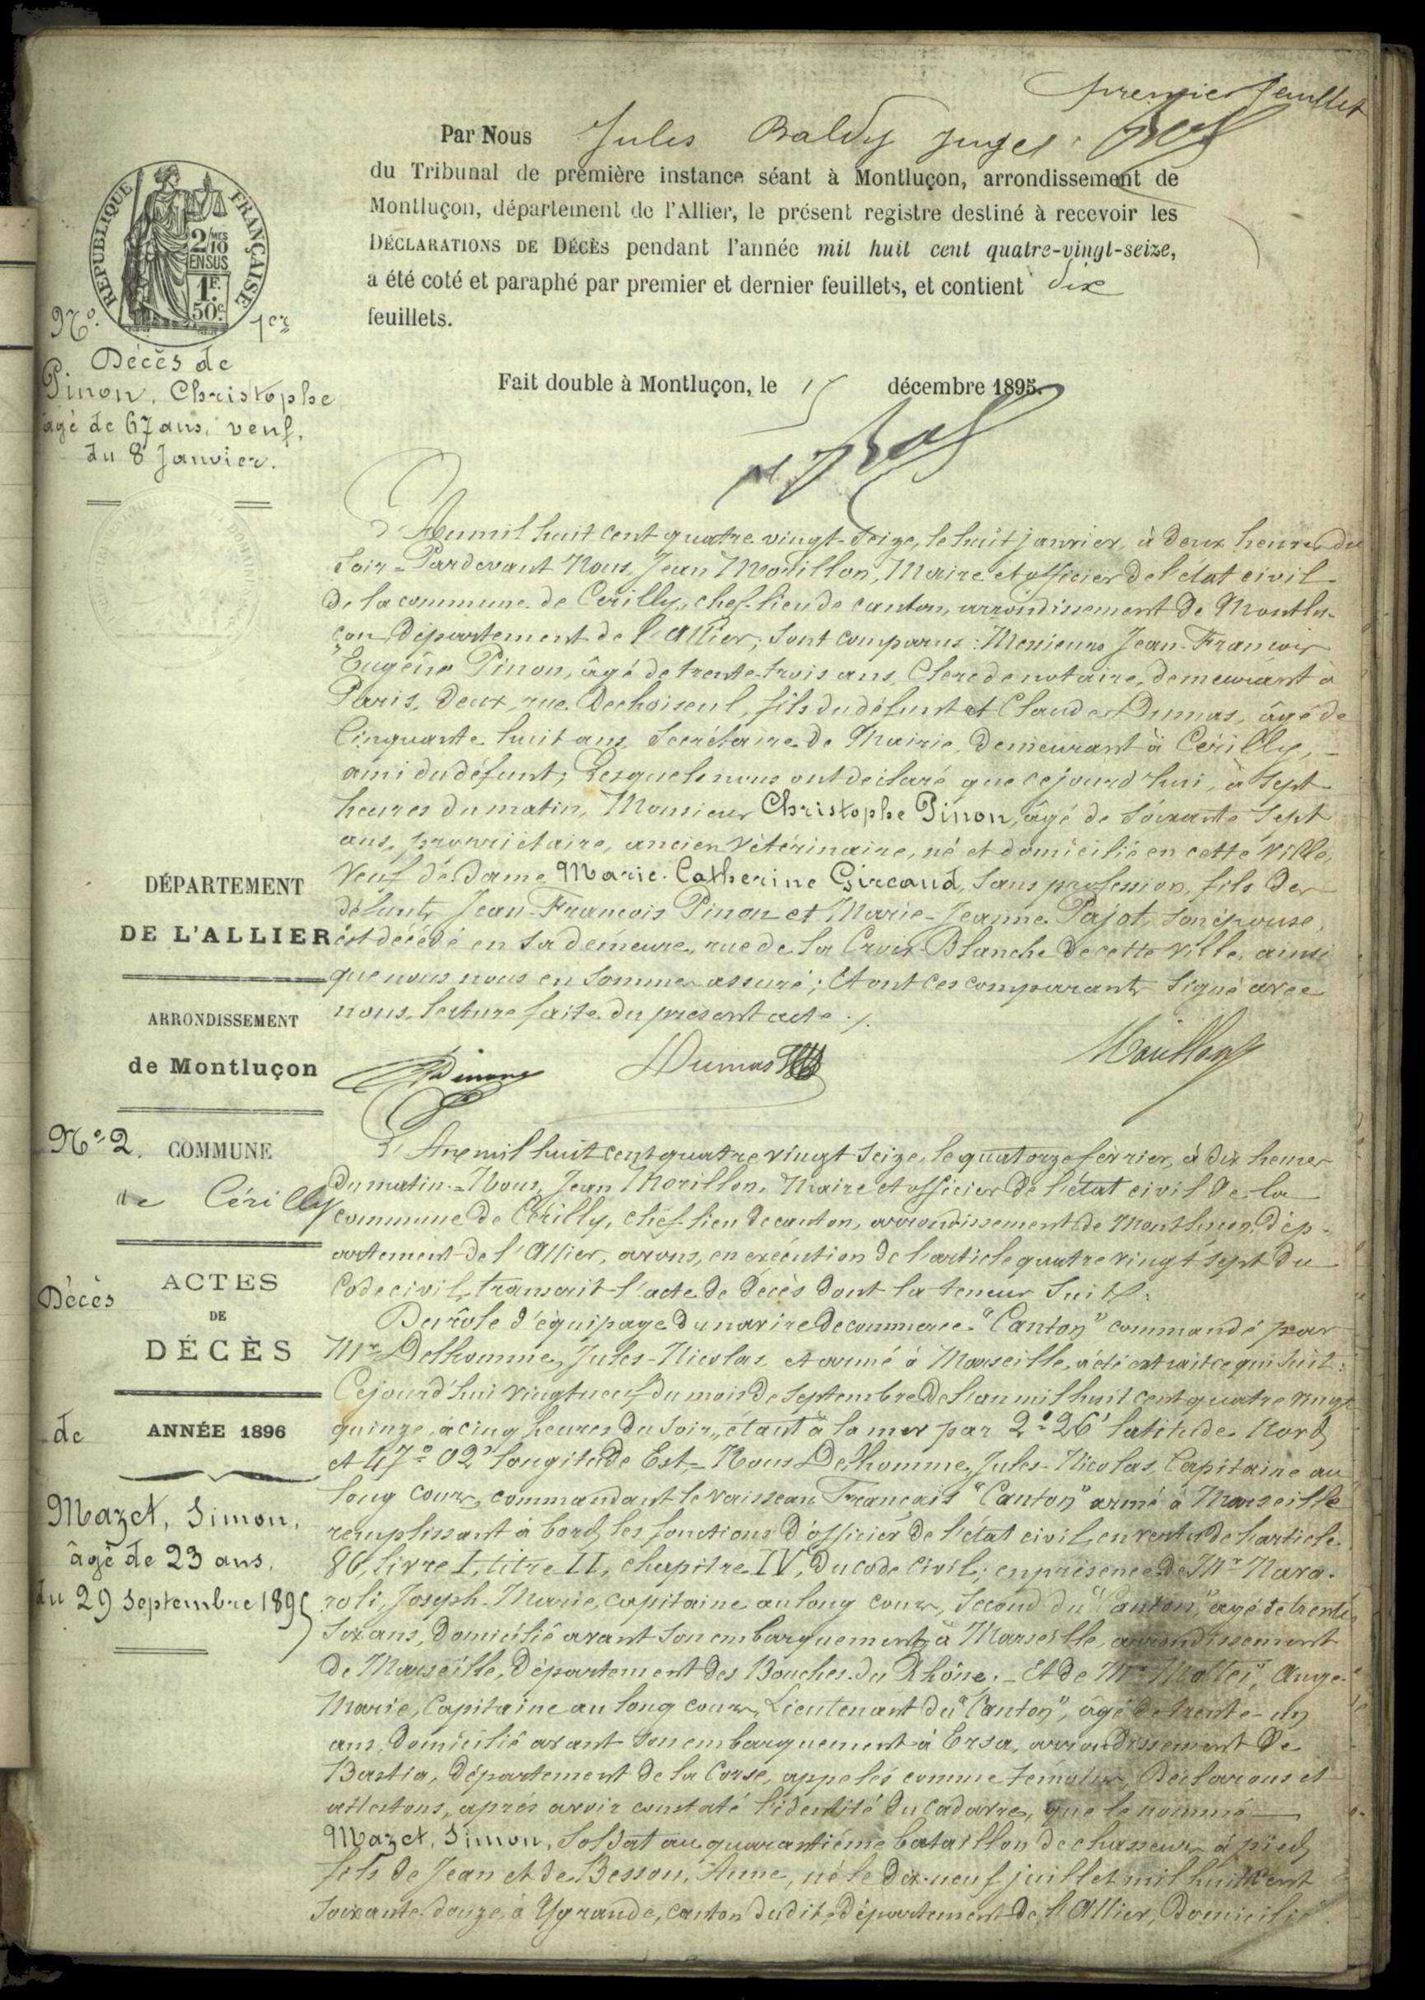 premier feuillet
Par Nous Jules Baldy juge
du Tribunal de première instance séant à Montluçon, arrondissement de
Montluçon, département de l'Allier, le présent registre destiné à recevoir les
DÉCLARATIONS DE DÉCÈS pendant l'année mil huit cent quatre-vingt-seize,
a été coté et paraphé par premier et dernier feuillets, et contient dix
feuillets.
Fait double à Montluçon, le 15 décembre 1895.
RÉPUBLIQUE FRANÇAISE
2/MES
10
EN SUS
1F.
50c.
No. 1er
Décès de
Pinon, Christophe
âgé de 67 ans, veuf,
du 8 Janvier.
L'An mil huit cent quatre vingt-seize, le huit janvier, à deux heures du
soir - Pardevant Nous, Jean Morillon, Maire et officier de l'état civil
de la commune de Cérilly, chef-lieu de canton, arrondissement de Montlu-
çon, département de l'Allier; sont comparus: Messieurs Jean-François
Eugène Pinon, âgé de trente-trois ans, Clerc de notaire, demeurant à
Paris, deux, rue Dechoiseul, fils du défunt et Claude Dumas, âgé de
Cinquante huit ans, Secrétaire de Mairie, demeurant à Cérilly,
ami du défunt; lesquels nous ont déclaré que cejourd'hui, à sept
heures du matin, Monsieur Christophe Pinon, âgé de soixante sept
ans, propriétaire, ancien vétérinaire, né et domicilié en cette ville,
Veuf de dame Marie-Catherine Giraud, sans profession, fils de
défunts Jean-François Pinon et Marie-Jeanne Pajot, son épouse,
est décédé en sa demeure, rue de la Croix-Blanche de cette ville, ainsi
que nous nous en sommes assuré; Et ont ces comparants signé avec
nous, lecture faite du présent acte ./.
Pinon Dumas Morillon
DÉPARTEMENT
DE L'ALLIER
ARRONDISSEMENT
de Montluçon
No 2. COMMUNE
de Cérilly
ACTES
DE
DÉCÈS
ANNÉE 1896
Décès
de
Mazet, Simon,
âgé de 23 ans,
du 29 Septembre 1895
L'An mil huit cent quatre vingt seize, le quatorze février, à dix heures
du matin. - Nous, Jean Morillon, Maire et officier de l'état civil de la
commune de Cérilly, chef-lieu de canton, arrondissement de Montluçon, dép-
artement de l'Allier, avons, en exécution de l'article quatre vingt sept du
Code civil, transcrit l'acte de décès dont la teneur suit:
Du rôle d'équipage du navire de commerce "Canton" commandé par
Mr Delhomme, Jules-Nicolas, et armé à Marseille, a été extrait ce qui suit:
Cejourd'hui vingt neuf du mois de septembre de l'an mil huit cent quatre vingt
quinze, à cinq heures du soir, étant à la mer par 2° 26' latitude Nord
et 47° 02' longitude Est, - Nous Delhomme, Jules-Nicolas, Capitaine au
long cours, commandant le vaisseau Français "Canton" armé à Marseille
remplissant à bord les fonctions d'officier de l'état civil, en vertu de l'article
86, livre I, titre II, chapitre IV, du code civil; en présence de Mr Nava-
roli, Joseph-Marie, capitaine au long cours, second du "Canton", âgé de trente
six ans, domicilié avant son embarquement à Marseille, arrondissement
de Marseille, département des Bouches-du-Rhône. - Et de Mr Mattei, Ange-
Marie, Capitaine au long cours, Lieutenant du "Canton", âgé de trente-un
ans, domicilié avant son embarquement à Ersa, arrondissement de
Bastia, département de la Corse, appelés comme témoins, Déclarons et
attestons, après avoir constaté l'identité du cadavre, que le nommé
Mazet, Simon, Soldat au quarantième bataillon de chasseurs à pied,
fils de Jean et de Besson, Anne, né le dix-neuf juillet mil huit cent
soixante-douze, à Ygrande, canton dudit, département de l'Allier, domicilié